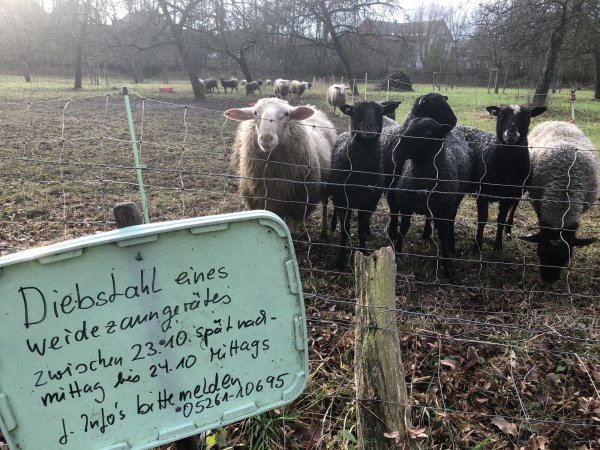 Diebstahl eines
Weidezaungerätes
zwischen 23.10. spät nach-
mittag bis 24.10. Mittags
f. Info's bitte melden
05261-10695